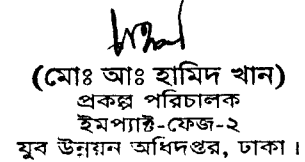 (মোঃ আঃ হামিদ খান)
প্রকল্প পরিচালক
ইমপ্যাক্ট-ফেজ-২
যুব উন্নয়ন অধিদপ্তর, ঢাকা।